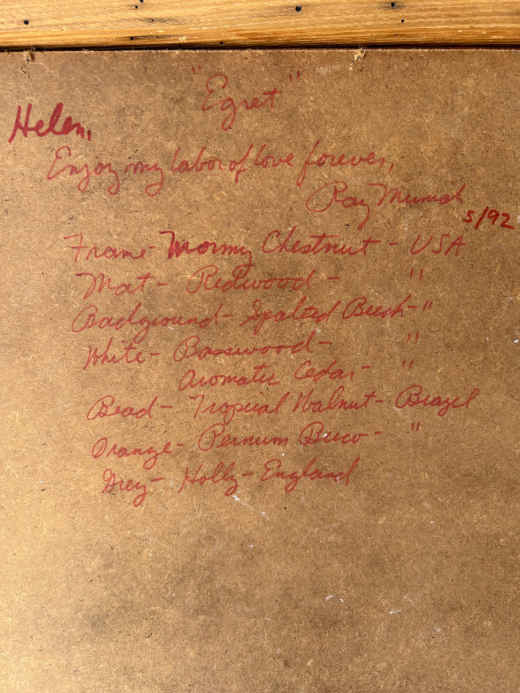 "Egret"
Helen,
Enjoy my labor of love forever,
Ray
5/92
Frame - Wormy Chestnut - USA
Mat - Redwood - "
Background - Spalted Beech - "
White - Basswood - "
Aromatic Cedar - "
Bead - Tropical Walnut - Brazil
Orange - - "
Grey - Holly - England